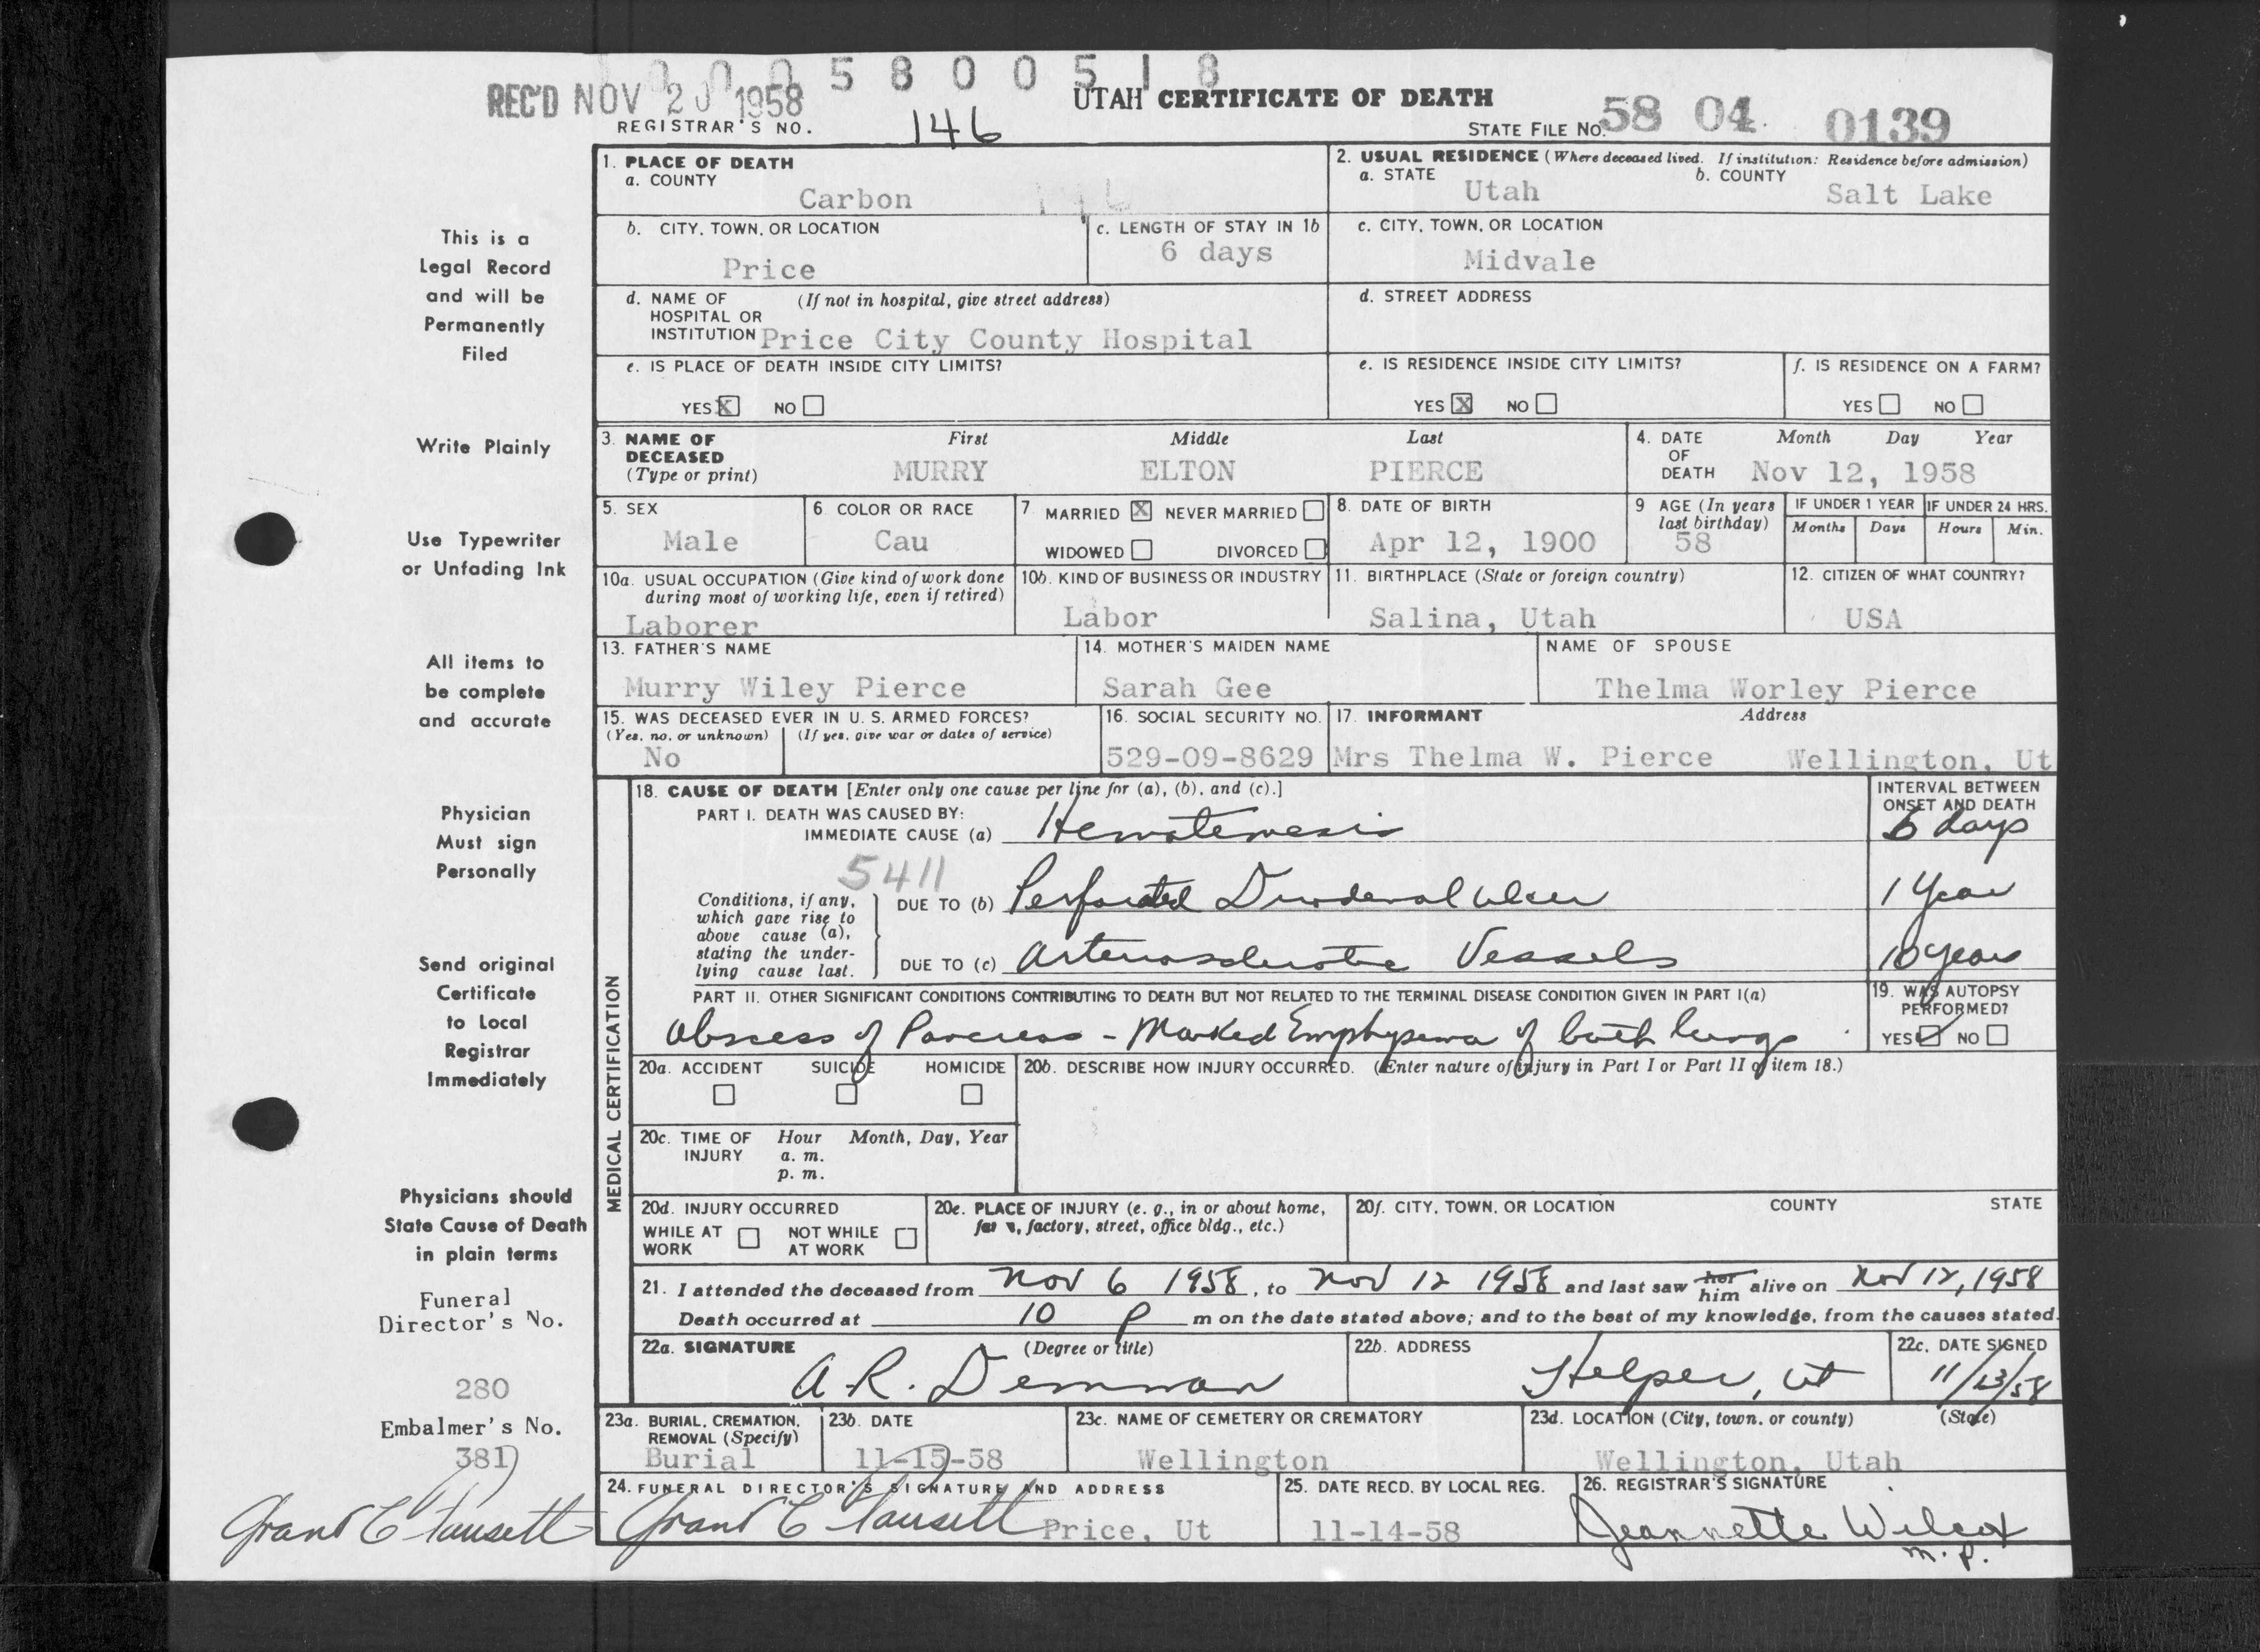 0 0 0 5 8 0 0 5 1 8
REC'D NOV 20 1958
UTAH CERTIFICATE OF DEATH
REGISTRAR'S NO. 146
STATE FILE NO. 58 04 0139
1. PLACE OF DEATH
a. COUNTY
Carbon
146
2. USUAL RESIDENCE (Where deceased lived. If institution: Residence before admission)
a. STATE Utah b. COUNTY Salt Lake
b. CITY, TOWN, OR LOCATION
Price
c. LENGTH OF STAY IN 1b
6 days
c. CITY, TOWN, OR LOCATION
Midvale
d. NAME OF (If not in hospital, give street address)
HOSPITAL OR
INSTITUTION Price City County Hospital
d. STREET ADDRESS
e. IS PLACE OF DEATH INSIDE CITY LIMITS?
YES X NO
e. IS RESIDENCE INSIDE CITY LIMITS?
YES X NO
f. IS RESIDENCE ON A FARM?
YES NO
3. NAME OF DECEASED
(Type or print)
First Middle Last
MURRY ELTON PIERCE
4. DATE OF DEATH
Month Day Year
Nov 12, 1958
5. SEX
Male
6. COLOR OR RACE
Cau
7. MARRIED X NEVER MARRIED
WIDOWED DIVORCED
8. DATE OF BIRTH
Apr 12, 1900
9 AGE (In years last birthday)
58
IF UNDER 1 YEAR
Months Days
IF UNDER 24 HRS.
Hours Min.
10a. USUAL OCCUPATION (Give kind of work done
during most of working life, even if retired)
Laborer
10b. KIND OF BUSINESS OR INDUSTRY
Labor
11. BIRTHPLACE (State or foreign country)
Salina, Utah
12. CITIZEN OF WHAT COUNTRY?
USA
13. FATHER'S NAME
Murry Wiley Pierce
14. MOTHER'S MAIDEN NAME
Sarah Gee
NAME OF SPOUSE
Thelma Worley Pierce
15. WAS DECEASED EVER IN U. S. ARMED FORCES?
(Yes, no, or unknown) (If yes, give war or dates of service)
No
16. SOCIAL SECURITY NO.
529-09-8629
17. INFORMANT Address
Mrs Thelma W. Pierce Wellington, Ut
MEDICAL CERTIFICATION
18. CAUSE OF DEATH [Enter only one cause per line for (a), (b), and (c).]
PART I. DEATH WAS CAUSED BY:
IMMEDIATE CAUSE (a) Hematemesis
INTERVAL BETWEEN
ONSET AND DEATH
6 days
5411
Conditions, if any,
which gave rise to
above cause (a),
stating the under-
lying cause last.
DUE TO (b) Perforated Duodenal ulcer
1 Year
DUE TO (c) Arteriosclerotic Vessels
10 years
PART II. OTHER SIGNIFICANT CONDITIONS CONTRIBUTING TO DEATH BUT NOT RELATED TO THE TERMINAL DISEASE CONDITION GIVEN IN PART I(a)
Abscess of Pancreas - Marked Emphysema of both lungs
19. WAS AUTOPSY
PERFORMED?
YES NO
20a. ACCIDENT SUICIDE HOMICIDE
20b. DESCRIBE HOW INJURY OCCURRED. (Enter nature of injury in Part I or Part II of item 18.)
20c. TIME OF INJURY
Hour Month, Day, Year
a. m.
p. m.
20d. INJURY OCCURRED
WHILE AT WORK NOT WHILE AT WORK
20e. PLACE OF INJURY (e. g., in or about home,
farm, factory, street, office bldg., etc.)
20f. CITY, TOWN, OR LOCATION COUNTY STATE
21. I attended the deceased from Nov 6 1958, to Nov 12 1958 and last saw her him alive on Nov 12, 1958
Death occurred at 10 P m on the date stated above; and to the best of my knowledge, from the causes stated.
22a. SIGNATURE (Degree or title)
A R. Demman
22b. ADDRESS
Helper, Ut
22c. DATE SIGNED
11/13/58
23a. BURIAL, CREMATION,
REMOVAL (Specify)
Burial
23b. DATE
11-15-58
23c. NAME OF CEMETERY OR CREMATORY
Wellington
23d. LOCATION (City, town, or county) (State)
Wellington, Utah
24. FUNERAL DIRECTOR'S SIGNATURE AND ADDRESS
Grant C Fausett Price, Ut
25. DATE RECD. BY LOCAL REG.
11-14-58
26. REGISTRAR'S SIGNATURE
Jeannette Wilcox
m. p.
This is a
Legal Record
and will be
Permanently
Filed
Write Plainly
Use Typewriter
or Unfading Ink
All items to
be complete
and accurate
Physician
Must sign
Personally
Send original
Certificate
to Local
Registrar
Immediately
Physicians should
State Cause of Death
in plain terms
Funeral
Director's No.
280
Embalmer's No.
381
Grant C Fausett